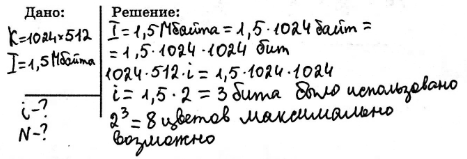 Дано:
K=1024×512
I=1,5 Мбайта
i-?
N-?
Решение:
I=1,5 Мбайта = 1,5·1024 байт =
= 1,5·1024·1024 бит
1024·512·i = 1,5·1024·1024
i = 1,5·2 = 3 бита было использовано
2³ = 8 цветов максимально
возможно